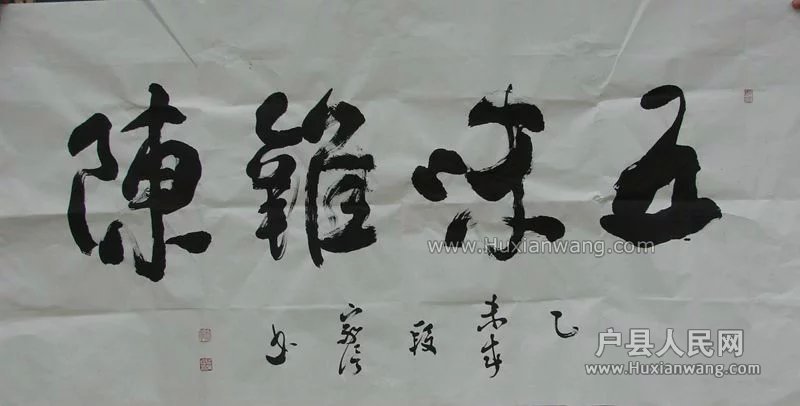 五味雜陳
乙
未年
段
书
www.Huxianwang.com
户县人民网
www.Huxianwang.com